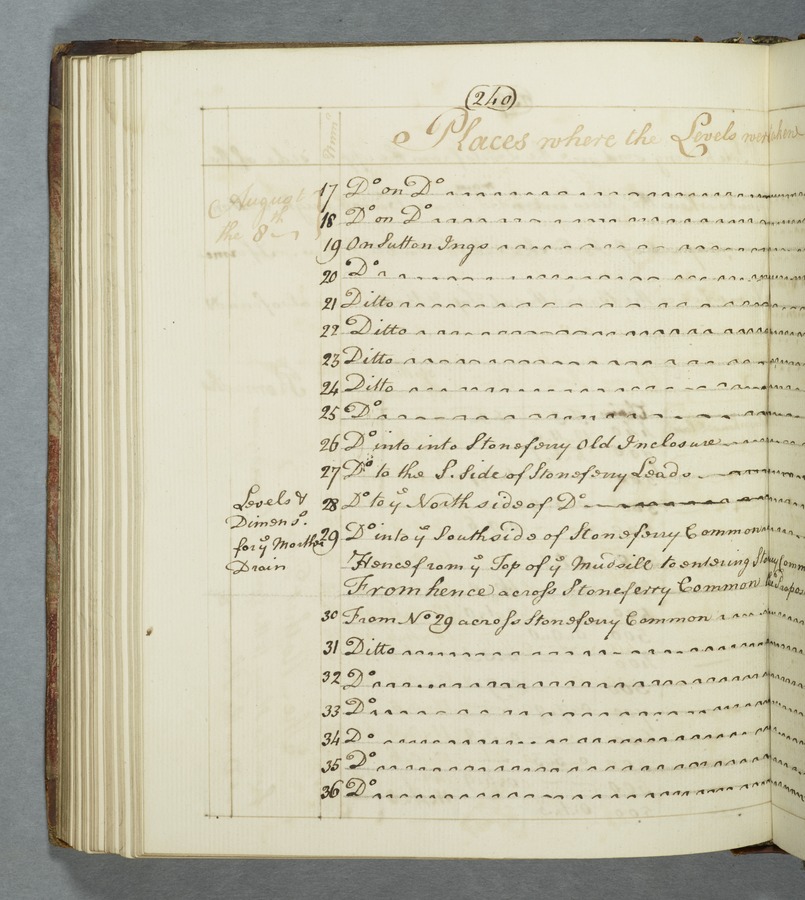 (240)
Places where the Levels were taken
August
the 8th
17 Do on Do
18 Do on Do
19 On Sutton Ings
20 Do
21 Ditto
22 Ditto
23 Ditto
24 Ditto
25 Do
26 Do into into Stoneferry Old Inclosure
27 Do to the S. Side of Stoneferry Leads
28 Do to ye North side of Do
Levels &
Dimenso.
for ye
Drain
29 Do into ye South side of Stoneferry Common
Hence from ye Top of ye Mudsill to entering
From hence across Stoneferry Common
30 From No 29 across Stoneferry Common
31 Ditto
32 Do
33 Do
34 Do
35 Do
36 Do